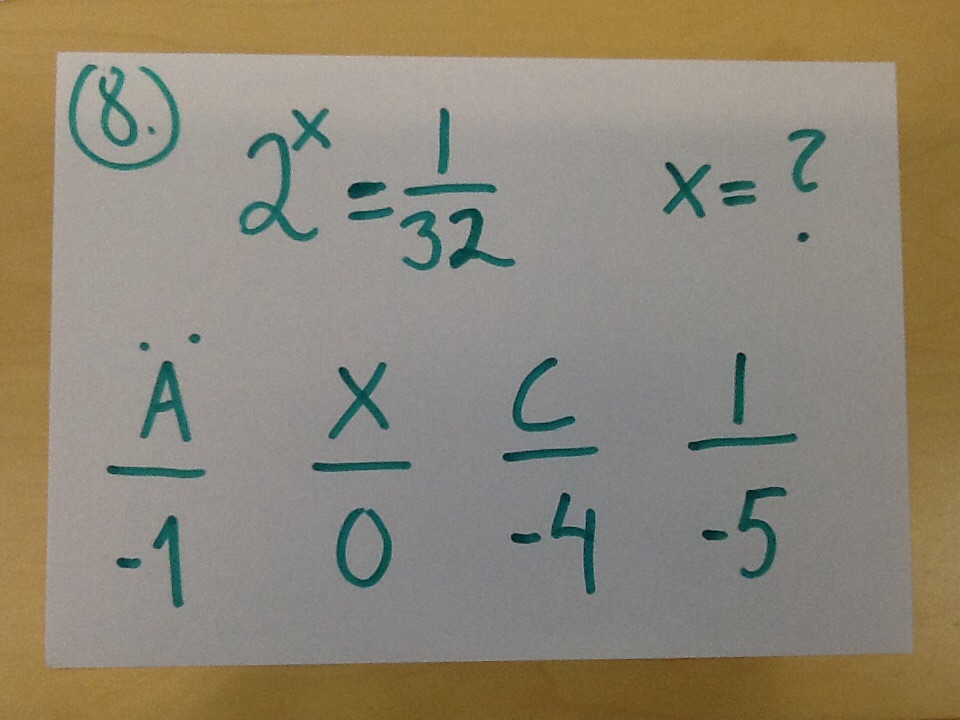 8.
2^x = 1/32 x = ?
Ä X C 1
-1 0 -4 -5